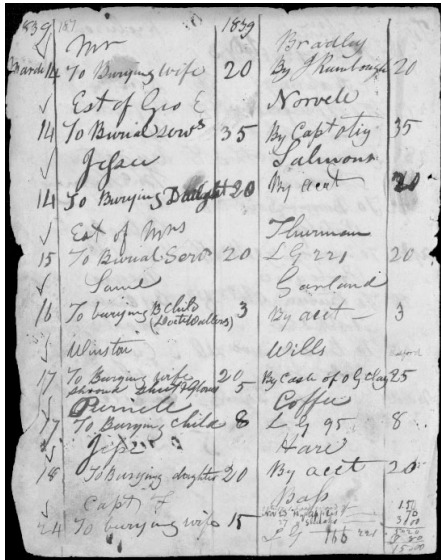 1839 187 1839
Mr Bradley
March 14 To Burying wife 20 By J Rumbough 20
Est of Geo E Norvell
14 To Burial servs 35 By Capt Otey 35
Jesse Salmons
14 To Burying Daught 20 By acct 20
Est of Mrs Thurman
15 To Burial Servs 20 L G 221 20
Saml Garland
16 To burying B Child 3 By acct 3
Winston Wills
17 To Burying wife 20 By Cash of O G Clay 25
Shroud &
Gloves 5
Purnell Coffee
17 To Burying Child 8 L G 95 8
Jesse Hare
18 To Burying daughter 20 By acct 20
Capt T Bass
24 To burying wife 15 L G